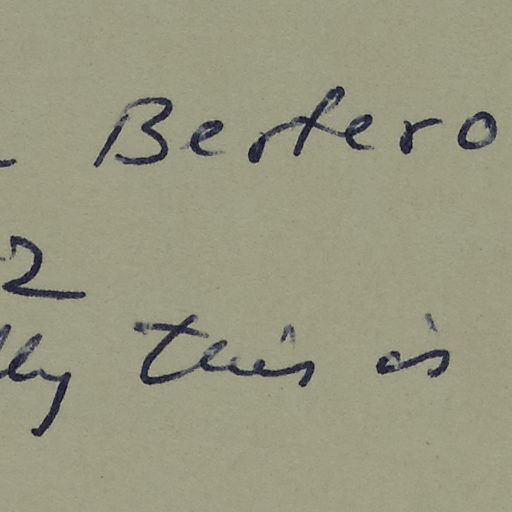 Bertero
2
lly this is